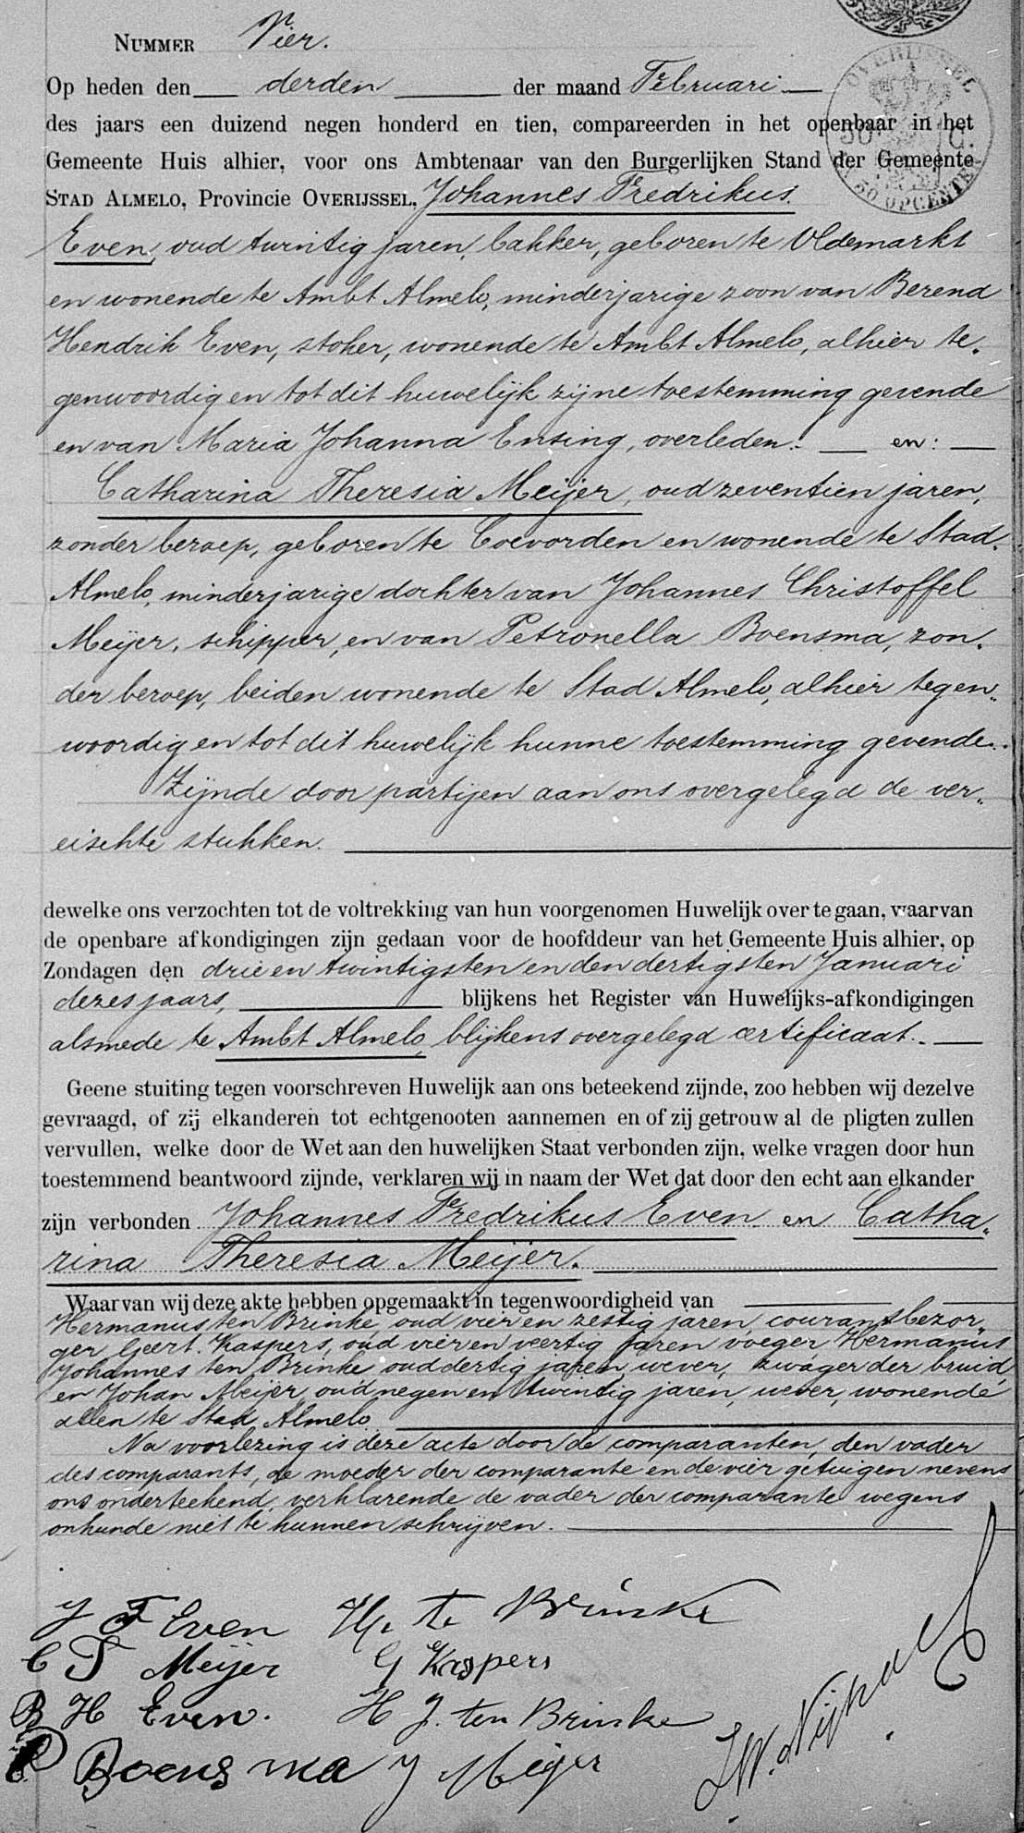 NUMMER Vier.
OVERIJSSEL
50 C.
50 OPCENTEN
Op heden den derden der maand Februari
des jaars een duizend negen honderd en tien, compareerden in het openbaar in het
Gemeente Huis alhier, voor ons Ambtenaar van den Burgerlijken Stand der Gemeente
STAD ALMELO, Provincie OVERIJSSEL, Johannes Fredrikus
Even, oud twintig jaren, bakker, geboren te Oldemarkt
en wonende te Ambt Almelo, minderjarige zoon van Berend
Hendrik Even, stoker, wonende te Ambt Almelo, alhier te-
genwoordig en tot dit huwelijk zijne toestemming gevende
en van Maria Johanna Ensing, overleden: en:
Catharina Theresia Meijer, oud zeventien jaren,
zonder beroep, geboren te Coevorden en wonende te Stad
Almelo, minderjarige dochter van Johannes Christoffel
Meijer, schipper, en van Petronella Boensma, zon-
der beroep, beiden wonende te Stad Almelo, alhier tegen-
woordig en tot dit huwelijk hunne toestemming gevende.
Zijnde door partijen aan ons overgelegd de ver-
eischte stukken.
dewelke ons verzochten tot de voltrekking van hun voorgenomen Huwelijk over te gaan, waarvan
de openbare afkondigingen zijn gedaan voor de hoofddeur van het Gemeente Huis alhier, op
Zondagen den drie en twintigsten en den dertigsten Januari
dezes jaars, blijkens het Register van Huwelijks-afkondigingen
alsmede te Ambt Almelo, blijkens overgelegd certificaat.
Geene stuiting tegen voorschreven Huwelijk aan ons beteekend zijnde, zoo hebben wij dezelve
gevraagd, of zij elkanderen tot echtgenooten aannemen en of zij getrouw al de pligten zullen
vervullen, welke door de Wet aan den huwelijken Staat verbonden zijn, welke vragen door hun
toestemmend beantwoord zijnde, verklaren wij in naam der Wet dat door den echt aan elkander
zijn verbonden Johannes Fredrikus Even en Catha-
rina Theresia Meijer.
Waarvan wij deze akte hebben opgemaakt in tegenwoordigheid van
Hermanus ten Brinke, oud vier en zestig jaren, courantbezor-
ger, Geert Kaspers, oud vier en veertig jaren, voeger, Hermanus
Johannes ten Brinke, oud dertig jaren, wever, zwager der bruid
en Johan Meijer, oud negen en twintig jaren, wever, wonende
allen te Stad Almelo
Na voorlezing is deze acte door de comparanten, den vader
des comparants, de moeder der comparante en de vier getuigen nevens
ons onderteekend, verklarende de vader der comparante wegens
onkunde niet te kunnen schrijven.
J F Even Hs te Brinke
C T Meijer G Kaspers
B H Even. H J. ten Brinke
P Boensma J Meijer